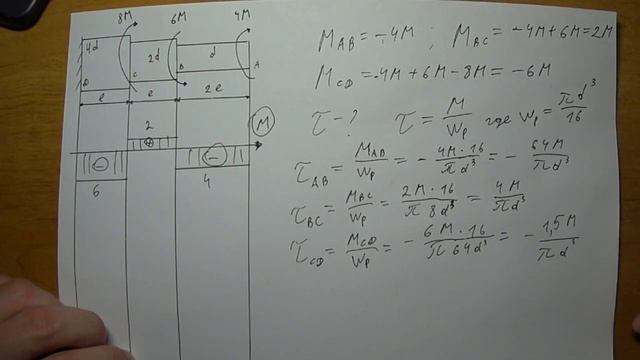 8М 6М 4М
4d 2d d
D C B A
ℓ ℓ 2ℓ
2 M
⊕
⊖ ⊖
6 4
M_AB = -4M ; M_BC = -4M+6M=2M
M_CD = -4M+6M-8M = -6M
τ-? τ = M/Wp где Wp = πd³/16
τ_AB = M_AB/Wp = - 4M·16/πd³ = - 64M/πd³
τ_BC = M_BC/Wp = 2M·16/π8d³ = 4M/πd³
τ_CD = M_CD/Wp = - 6M·16/π64d³ = - 1,5M/πd³